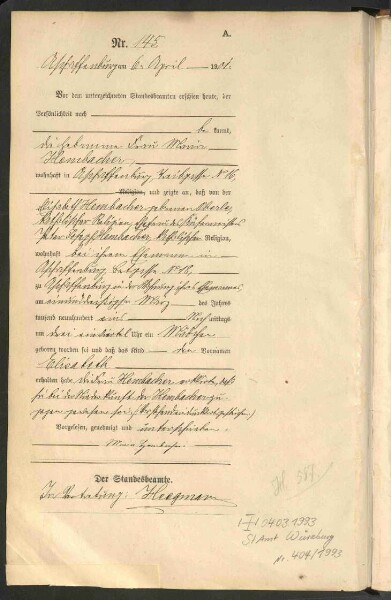 A.
Nr. 145
Aschaffenburg am 6. April 1901.
Vor dem unterzeichneten Standesbeamten erschien heute, der
Persönlichkeit nach
be kannt,
die Hebamme Frau Maria
Hembacher,
wohnhaft in Aschaffenburg
Religion, und zeigte an, daß von der
Elisabeth Hembacher, geborenen
katholischer Religion, Ehefrau des
Peter Joseph Hembacher, katholischer Religion,
wohnhaft bei ihrem Ehemanne in
Aschaffenburg
zu Aschaffenburg in der Wohnung ihres Ehemannes
am einunddreißigsten März des Jahres
tausend neunhundert eins Nachmittags
um drei einviertel Uhr ein Mädchen
geboren worden sei und daß das Kind den Vornamen
Elisabeth
erhalten habe. Die Frau Hembacher erklärte, daß
sie bei der Niederkunft der Hembacher zu-
gegen gewesen sei.
Vorgelesen, genehmigt und unterschrieben.
Maria Hembacher
Der Standesbeamte.
In Vertretung: Heegmann
04.03.1993
StAmt Würzburg
Nr. 404/1993